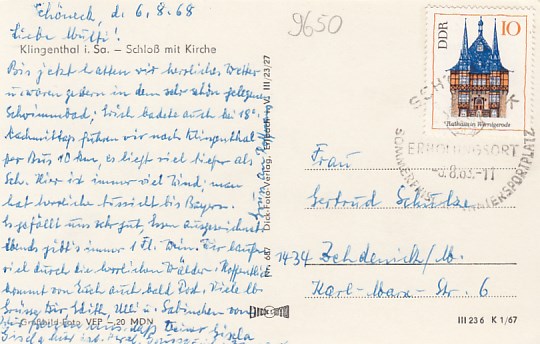 Schöneck, d. 6.8.68
Liebe Mutti!
Klingenthal i. Sa. – Schloß mit Kirche
Bis jetzt hatten wir herrliches Wetter
u. waren gestern in dem sehr schön gelegenen
Schwimmbad; Erich badete auch bei 18°.
Nachmittags fuhren wir nach Klingenthal
per Bus 10 km, es liegt viel tiefer als
Sch. Hier ist immer viel Wind; man
hat herrliche Aussicht bis Bayern.
Es gefällt uns sehr gut, Essen ausgezeichnet
abends gibt's immer 1 Fl. Wein. Wir laufen
viel durch die herrlichen Wälder. Hoffentlich
kommt von Euch auch bald Post. Viele lb.
Grüsse Dir, Edith, Ulli u. Sabinchen von
Deiner Gisela
Großbild-Foto VEP – 20 MDN
Nr. 687 Dick-Foto-Verlag, Erlbach i. V. III/23/27
9650
DDR
10
Rathaus in Wernigerode
ERHOLUNGSORT
8.68.-11
SOMMERFRISCHE
WINTERSPORTPLATZ
Frau
Gertrud Schulze
1434 Zehdenick/H.
Karl-Marx-Str. 6
III 23 6 K 1/67